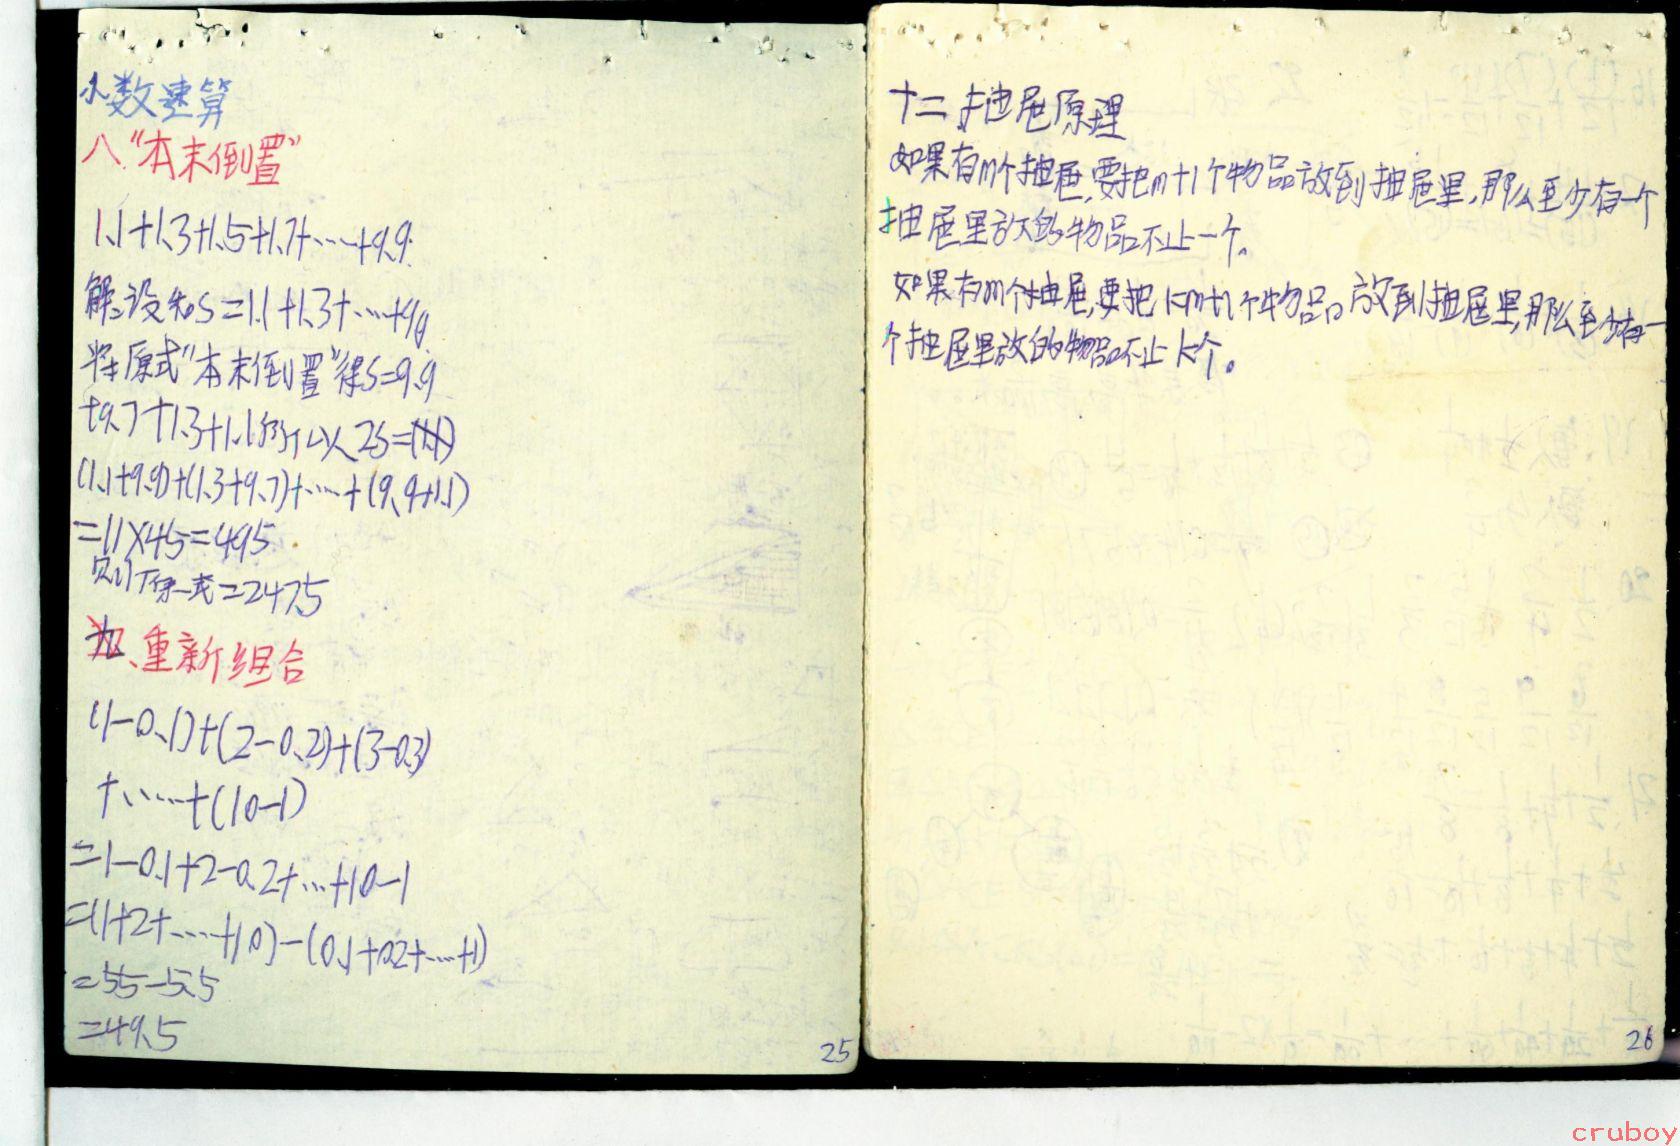 小数速算
八“本末倒置”
1.1+1.3+1.5+1.7+……+9.9.
解:设知S=1.1+1.3+……+9.9
将原式“本末倒置”得S=9.9
+9.7+1.3+1.1所以2S=
(1.1+9.9)+(1.3+9.7)+……+(9.9+1.1)
=11×45=495
则原式=247.5
九、重新组合
(1-0.1)+(2-0.2)+(3-0.3)
+……+(10-1)
=1-0.1+2-0.2+…+10-1
=(1+2+……+10)-(0.1+0.2+……+1)
=55-5.5
=49.5
25
十二抽屉原理
如果有m个抽屉,要把m+1个物品放到抽屉里,那么至少有一个
抽屉里放的物品不止一个。
如果有m个抽屉,要把km+1个物品放到抽屉里,那么至少有一
个抽屉里放的物品不止k个。
26
cruboy